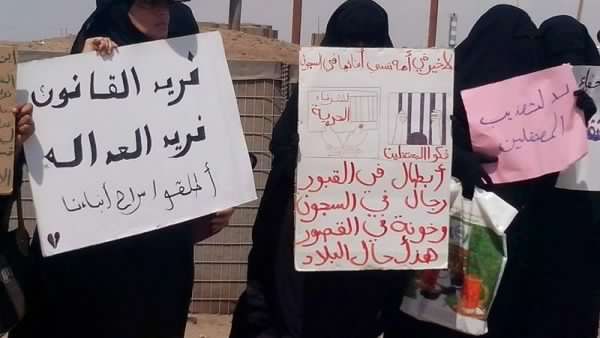 نريد القانون
نريد العداله
أطلقوا سراح أبناءنا
لا خير في أمة تنسى أبنائها في السجون
الحرية
أبطال في القبور
رجال في السجون
وخونة في القصور
هذا حال البلاد
لا لتعذيب
المعتقلين